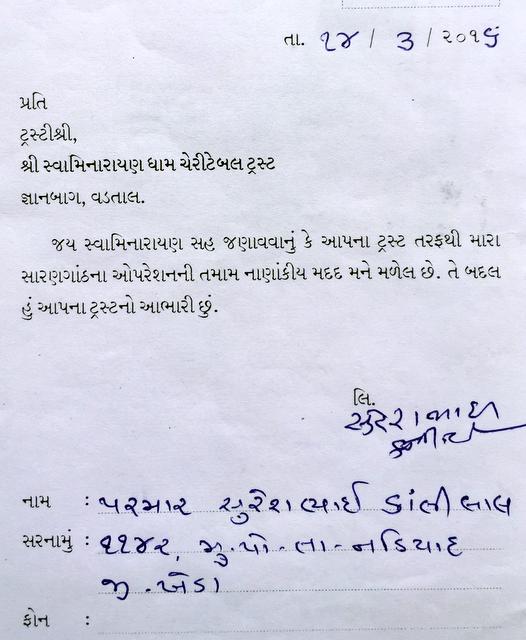 તા. ૧૪ / ૩ / ૨૦૧૬
પ્રતિ
ટ્રસ્ટીશ્રી,
શ્રી સ્વામિનારાયણ ધામ ચેરીટેબલ ટ્રસ્ટ
જ્ઞાનબાગ, વડતાલ.
જય સ્વામિનારાયણ સહ જણાવવાનું કે આપના ટ્રસ્ટ તરફથી મારા
સારણગાંઠના ઓપરેશનની તમામ નાણાંકીય મદદ મને મળેલ છે. તે બદલ
હું આપના ટ્રસ્ટનો આભારી છું.
લિ.
નામ : પરમાર સુરેશભાઈ કાંતીલાલ
સરનામું : ૧૧૪૨, મુ.પો-તા-નડિયાદ
જી.ખેડા
ફોન :